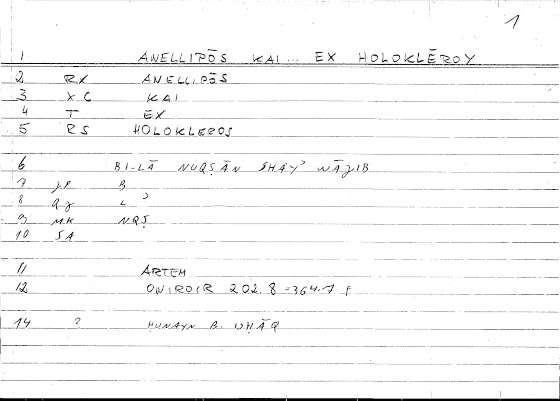 1
1 ANELLIPŌS KAI... EX HOLOKLĒROY
2 RX ANELLIPŌS
3 XC KAI
4 T EX
5 RS HOLOKLEROS
6 BI-LĀ NUQṢĀN SHAYʾ WĀJIB
7 J.P B
8 Q.J L ʾ
9 M.K NQṢ
10 SA
11 ARTEM
12 ONIROCR 202.8 = 364.7 f
14 ? ḤUNAYN B. ISḤĀQ